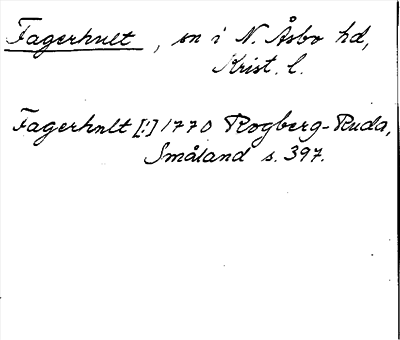 Fagerhult, sn i N. Åsbo hd,
Krist. l.
Fagerhult [!] 1770 Rogberg-Ruda,
Småland s. 397.